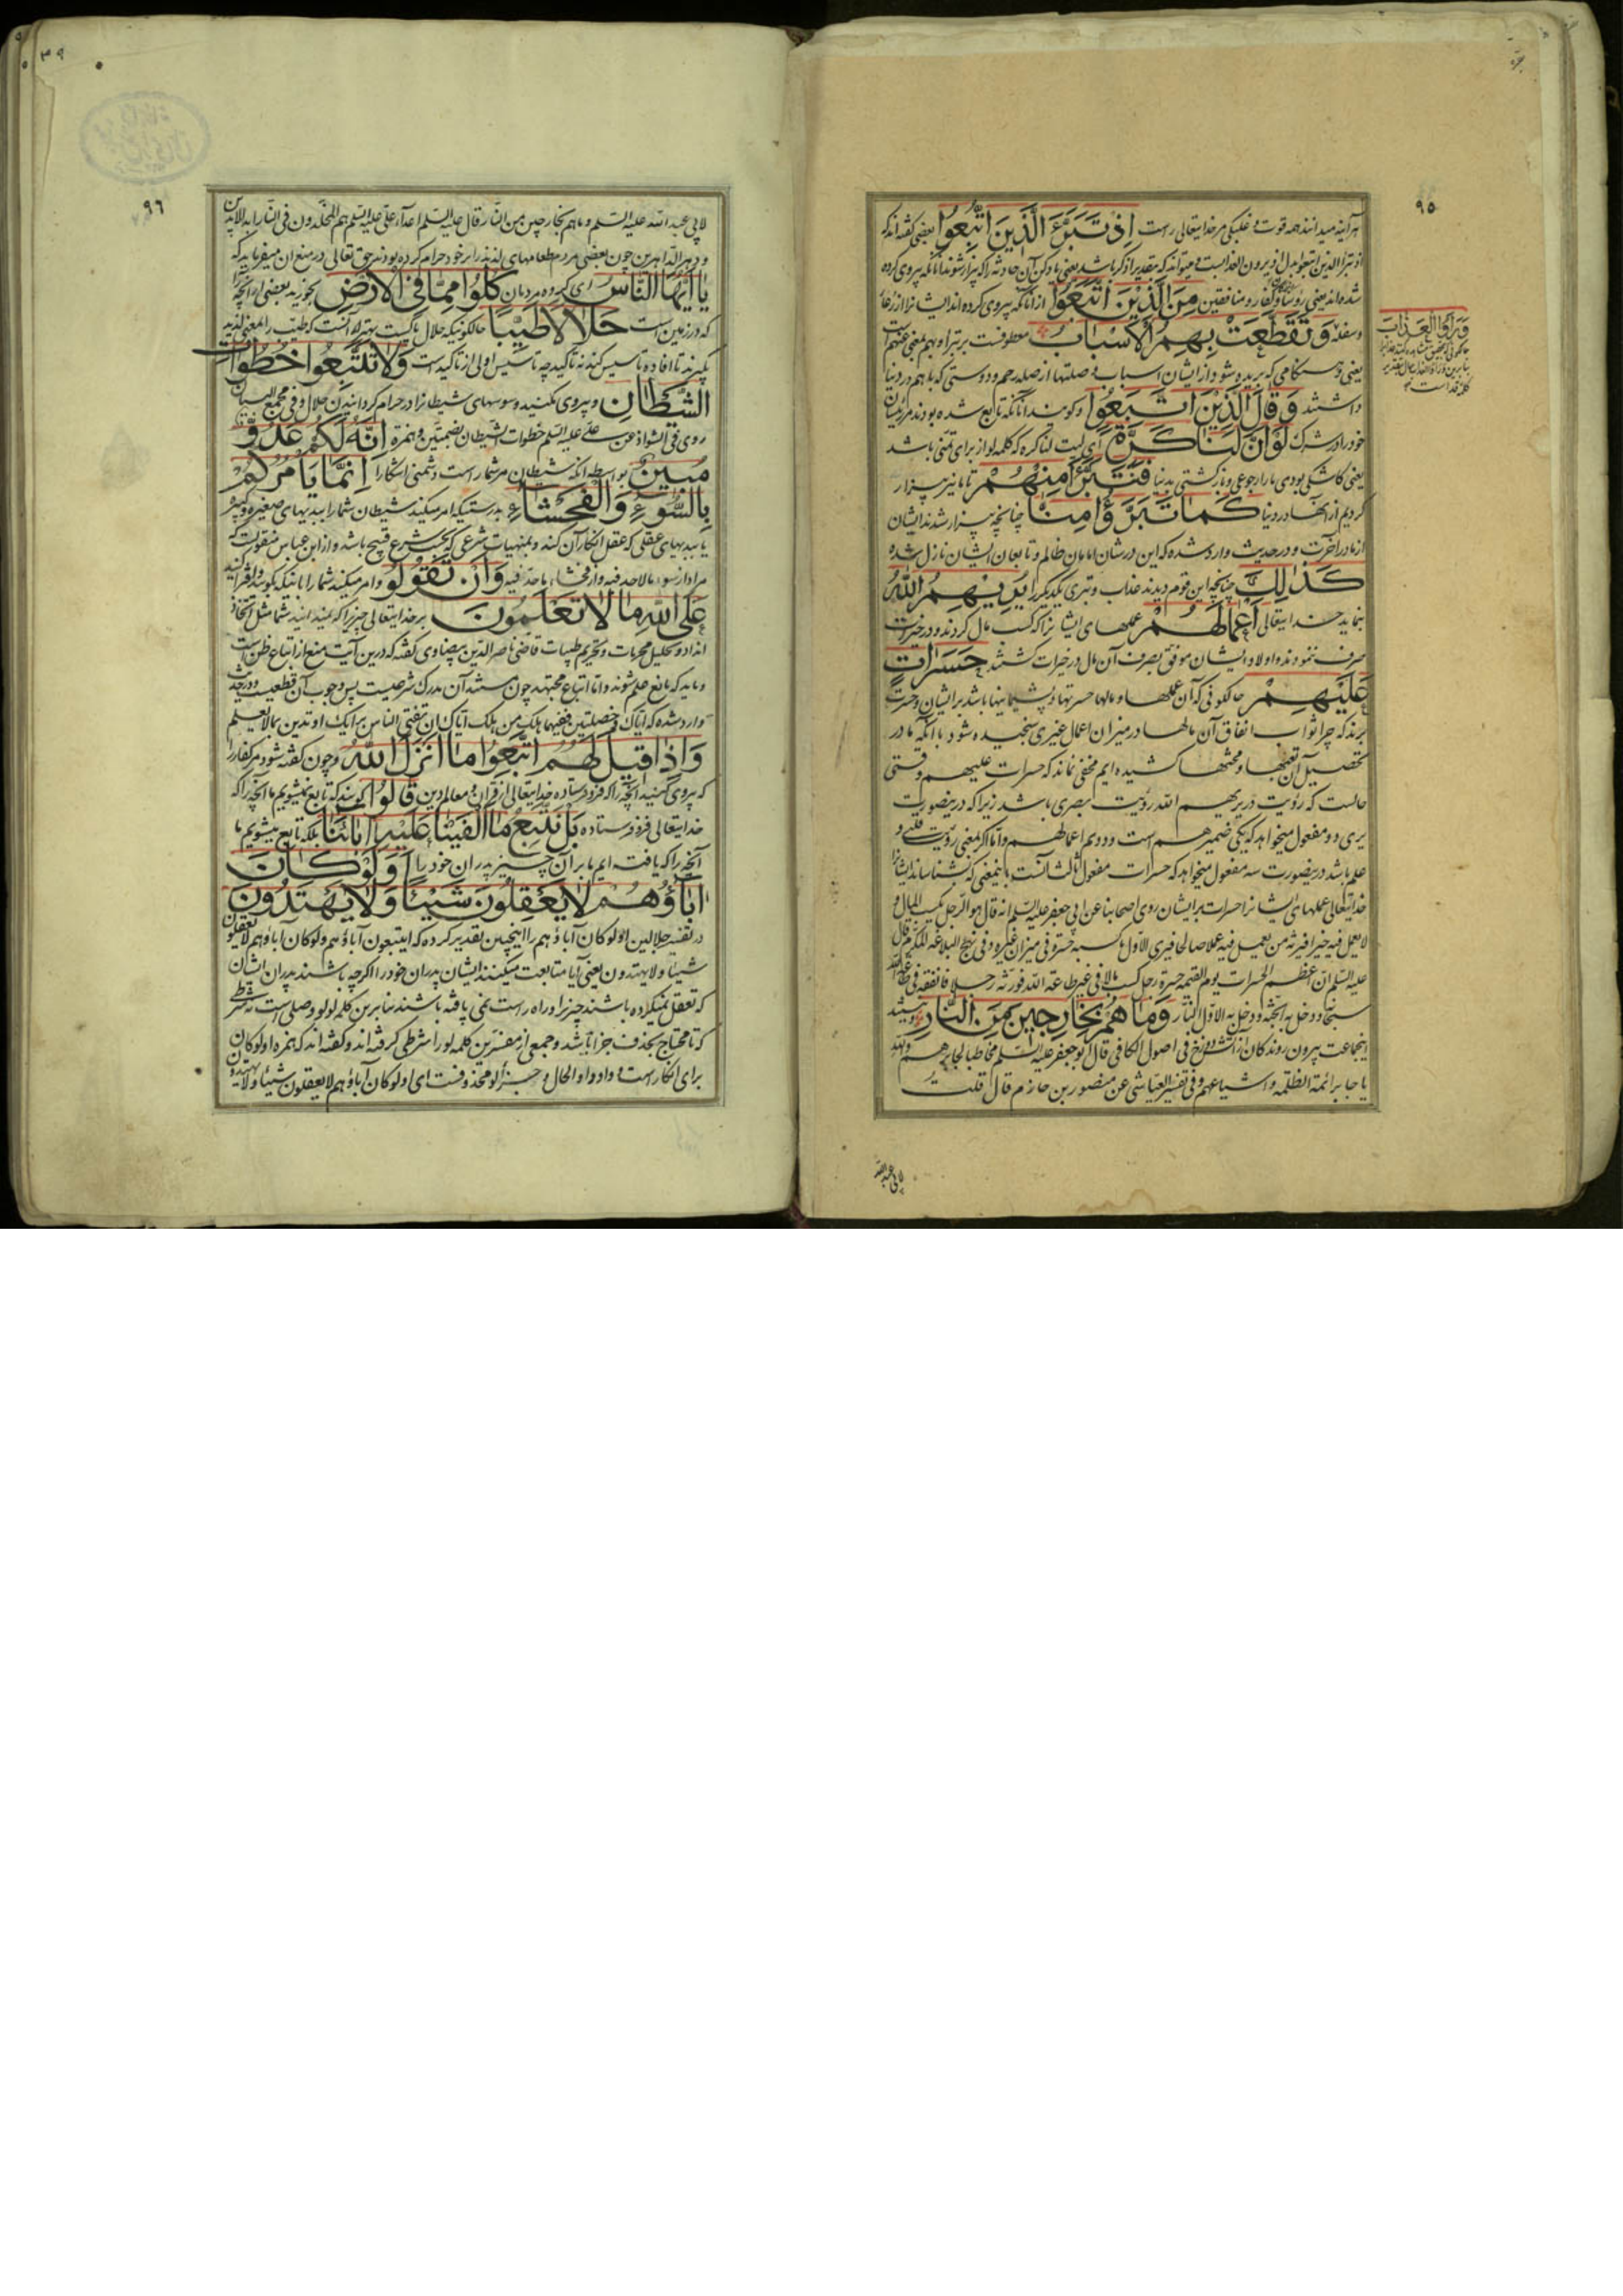 ٩٥
هرآینه میدانند همه قوت و غلبگی مر خدایتعالی راست اِذْ تَبَرَّءَ الَّذینَ اتُّبِعُوا بعضی گفته‌اند که
اذ تبرا الذین اتبعوا بدل اذ یرون العذابست و میتواند که بتقدیر اذکر باشد یعنی یاد کن آن حادثه را که بیزار شوند آنانکه پیروی کرده
شده‌اند یعنی رؤساء کفار و منافقین مِنَ الَّذینَ اتَّبَعُوا از آنانکه پیروی کرده‌اند ایشانرا از رعایا
وسفله وَتَقَطَّعَتْ بِهِمُ الْاَسْبابُ معطوفست بر تبرا و بهم بمعنی عنهم است
یعنی و هنگامی که بریده شود از ایشان اسباب وصلتها از صله رحم و دوستی که با هم در دنیا
داشتند وَقالَ الَّذینَ اتَّبَعُوا و گویند آنانکه تابع شده بودند مر رئیسان
خود را در شرک لَوْ اَنَّ لَنا کَرَّةً ای لیت لنا کرة که کلمه لو از برای تمنی باشد
یعنی کاشکی بودی ما را رجوعی و بازگشتی بدنیا فَنَتَبَرَّءَ مِنْهُمْ تا ما نیز بیزار
گردیم از آنها در دنیا کَما تَبَرَّؤُا مِنّا چنانچه بیزار شدند ایشان
از ما در آخرت و در حدیث وارد شده که این در شان امامان ظالم و تابعان ایشان نازل شده
کَذلِکَ چنانچه این قوم دیدند عذاب و تبری یکدیگر را یُریهِمُ اللهُ
بنماید خدایتعالی اَعْمالَهُمْ عملهای ایشانرا که کسب مال کردند و در خیرات
صرف ننمودند و اولاد ایشان موفق بصرف آن مال در خیرات گشتند حَسَراتٍ
عَلَیْهِمْ حالکونی که آن عملها و مالها حسرتها و پشیمانیها باشد بر ایشان و حسرت
برند که چرا ثواب انفاق آن مالها در میزان اعمال غیری سنجیده شود با آنکه ما در
تحصیل آن تعبها و محنتها کشیده‌ایم مخفی نماند که حسرات علیهم وقتی
حالست که رؤیت در یریهم الله رؤیت بصری باشد زیرا که درینصورت
یری دو مفعول میخواهد که یکی ضمیر هم است و دویم اعمالهم و اما اگر بمعنی رؤیت قلبی و
علم باشد درینصورت سه مفعول میخواهد که حسرات مفعول ثالث آنست باینمعنی که بشناساند ایشانرا
خدایتعالی عملهای ایشانرا حسرات بر ایشان روی اصحابنا عن ابی جعفر علیه السّلم انه قال هو الرجل یکسب المال و
لا یعمل فیه خیرا فیرثه من یعمل فیه عملا صالحا فیری الاوّل ما کسبه حسرة فی میزان غیره و فی نهج البلاغه
علیه السّلم ان اعظم الحسرات یوم القیمة حسرة رجل کسب مالا فی غیر طاعة الله فورثه رجلا فانفقه فی طاعة الله
سبحانه و دخل به الجنّة و دخل به الاوّل النّار وَما هُمْ بِخارِجینَ مِنَ النّارِ
اینجماعت بیرون روندگان از آتش دوزخ فی اصول الکافی قال ابو جعفر علیه السّلم مخاطبا لجابر هم والله
یا جابر ائمة الظلمة و اشیاعهم و فی تفسیر العیّاشی عن منصور بن حازم قال قلت
لابی عبدالله
وَرَاَوُا الْعَذابَ
٩٦
٣٩
لابی عبد الله علیه السّلم وما هم بخارجین من النّار قال علیه السّلم اعداء علی علیه السّلم هم المخلّدون فی النّار ابد الابدین
و دهر الدّاهرین چون بعضی مردم طعامهای لذیذ را بر خود حرام کرده بودند حق تعالی در منع آن میفرماید که
یا اَیُّهَا النّاسُ ای گروه مردمان کُلُوا مِمّا فِی الْاَرْضِ بخورید بعضی از آنچه
که در زمین است حَلالاً طَیِّباً حالکونیکه حلال پاکست بهتر آنست که طیّب را بمعنی لذیذ
بگیرند تا افاده تاسیس کند نه تاکید چه تاسیس اولی از تاکید است وَلا تَتَّبِعُوا خُطُواتِ
الشَّیْطانِ و پیروی مکنید وسوسهای شیطانرا در حرام گردانیدن حلال و فی مجمع البیان
روی فی الشواذ عن علیّ علیه السّلم خطوات الشیطان بضمتین و همزة اِنَّهُ لَکُمْ عَدُوٌّ
مُبینٌ بواسطه آنکه شیطان مر شما راست دشمنی آشکارا اِنَّما یَاْمُرُکُمْ
بِالسُّوءِ وَالْفَحْشاءِ بدرستیکه امر میکند شیطان شما را ببدیهای صغیره و کبیره
یا ببدیهای عقلی که عقل انکار آن کند و بمنهیات شرعی که بحسب شرع قبیح باشد و از ابن عباس منقولست که
مراد از سوء ما لا حد فیه و از فحشاء ما حد فیه وَاَنْ تَقُولُوا و امر میکند شما را باینکه بگویید و افترا کنید
عَلَی اللهِ ما لا تَعْلَمُونَ بر خدایتعالی چیزیرا که نمیدانید شما مثل اتخاذ
انداد و تحلیل محرمات و تحریم طیبات قاضی ناصر الدّین بیضاوی گفته که درین آیت منع از اتباع ظن است
و اما اتباع مجتهد چون مستند آن مدرک شرعیست پس وجوب آن قطعیست و در حدیث
وارد شده که ایّاک و خصلتین ففیهما هلک من هلک ایّاک ان تفتی الناس برایک او تدین بما لا تعلم
وَاِذا قیلَ لَهُمُ اتَّبِعُوا ما اَنْزَلَ اللهُ و چون گفته شود مر کفار را
که پیروی کنید آنچه را که فرو فرستاده خدایتعالی از قرآن و معالم دین قالُوا گویند که تابع نمیشویم ما آنچه را که
خدایتعالی فرو فرستاده بَلْ نَتَّبِعُ ما اَلْفَیْنا عَلَیْهِ اباءَنا بلکه تابع میشویم ما
آنچه را که یافته‌ایم ما بر آن چیز پدران خود را اَوَلَوْ کانَ
اباؤُهُمْ لا یَعْقِلُونَ شَیْئاً وَلا یَهْتَدُونَ
در تفسیر جلالین اولو کان آباؤهم را اینچنین تقدیر کرده که ایتبعون آباؤهم ولو کان اباؤهم لا یعقلون
شیئا ولا یهتدون یعنی آیا متابعت میکنند ایشان پدران خود را اگرچه باشند پدران ایشان
که تعقل نمیکرده باشند چیزیرا و راه راست نمی یافته باشند بنابرین کلمه لو لو وصلی است نه شرطی
که تا محتاج بحذف جزا باشد و جمعی از مفسّرین کلمه لو را شرطی گرفته‌اند و گفته‌اند که همزه اولو کان
برای انکار است و واو واو الحال و جزاء لو محذوفست ای اولو کان اباؤهم لا یعقلون شیئا ولا یهتدون